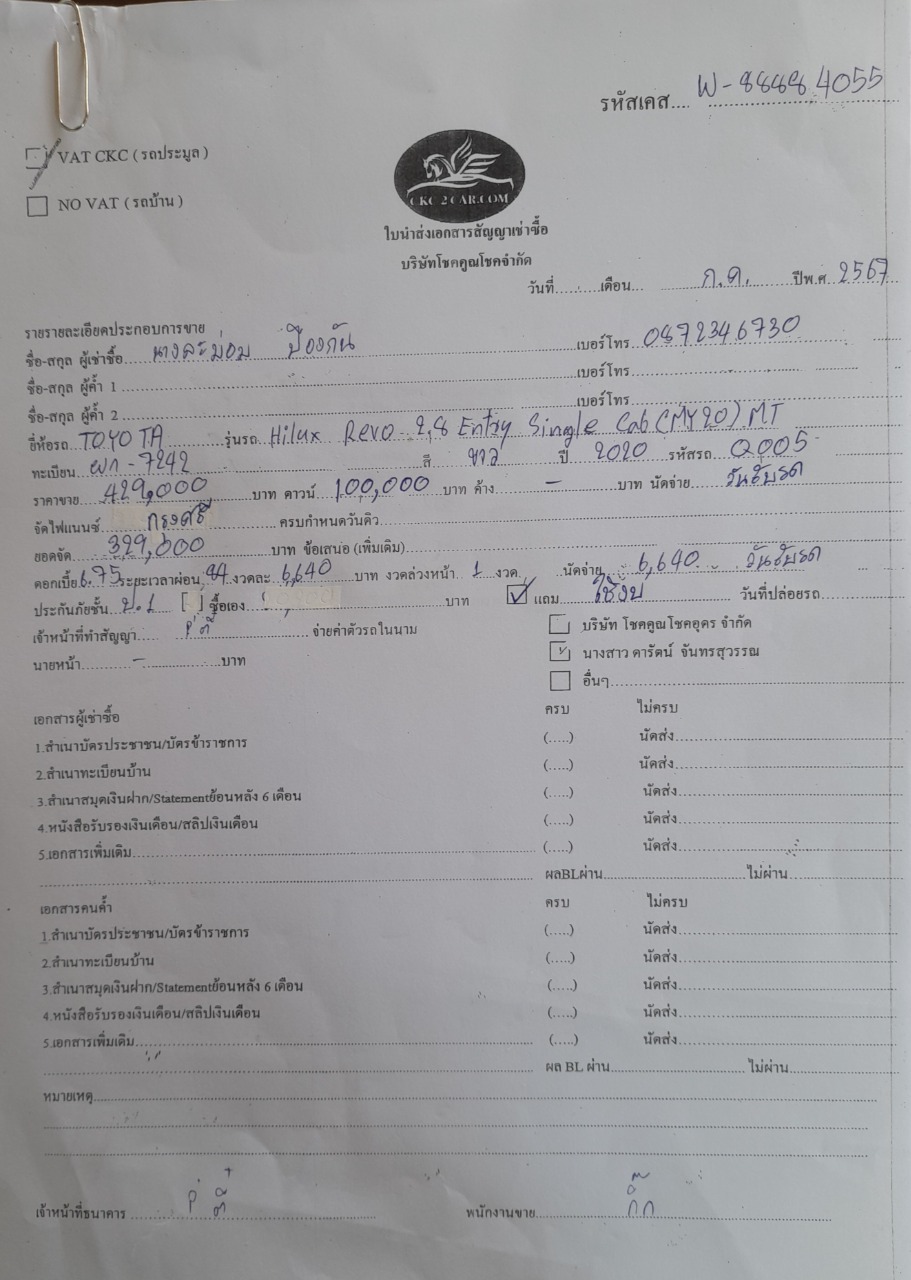 รหัสเคส.... W-8888 4055
VAT CKC ( รถประมูล )
NO VAT ( รถบ้าน )
CKC 2 CAR.COM
ใบนำส่งเอกสารสัญญาเช่าซื้อ
บริษัทโชคคูณโชคจำกัด
วันที่..........เดือน .......... ก.ค. ..........ปีพ.ศ 2567
รายรายละเอียดประกอบการขาย
ชื่อ-สกุล ผู้เช่าซื้อ นางละม่อม ป้องกัน เบอร์โทร 0872346730
ชื่อ-สกุล ผู้ค้ำ 1 .......... เบอร์โทร ..........
ชื่อ-สกุล ผู้ค้ำ 2 .......... เบอร์โทร ..........
ยี่ห้อรถ TOYOTA รุ่นรถ Hilux Revo - 2,8 Entry Single Cab (MY20) MT
ทะเบียน ผก - 7242 สี ขาว ปี 2020 รหัสรถ Q005
ราคาขาย 429,000 บาท ดาวน์ 100,000 บาท ค้าง - บาท นัดจ่าย วันรับรถ
จัดไฟแนนซ์ กรุงศรี ครบกำหนดวันดิว..........
ยอดจัด 329,000 บาท ข้อเสนอ (เพิ่มเติม)..........
ดอกเบี้ย 6.75 ระยะเวลาผ่อน 84 งวดละ 6,640 บาท งวดล่วงหน้า 1 งวด นัดจ่าย 6,640 วันรับรถ
ประกันภัยชั้น ป.1 [ ] ซื้อเอง .......... บาท ✓ แถม ใช้งบ วันที่ปล่อยรถ..........
เจ้าหน้าที่ทำสัญญา P'ตี๋ จ่ายค่าตัวรถในนาม บริษัท โชคคูณโชคอุดร จำกัด
นายหน้า - บาท ✓ นางสาว ดารัตน์ จันทรสุวรรณ
อื่นๆ..........
เอกสารผู้เช่าซื้อ ครบ ไม่ครบ
1.สำเนาบัตรประชาชน/บัตรข้าราชการ (.....) นัดส่ง..........
2.สำเนาทะเบียนบ้าน (.....) นัดส่ง..........
3.สำเนาสมุดเงินฝาก/Statementย้อนหลัง 6 เดือน (.....) นัดส่ง..........
4.หนังสือรับรองเงินเดือน/สลิปเงินเดือน (.....) นัดส่ง..........
5.เอกสารเพิ่มเติม.......... (.....) นัดส่ง..........
ผลBLผ่าน..........ไม่ผ่าน..........
เอกสารคนค้ำ ครบ ไม่ครบ
1.สำเนาบัตรประชาชน/บัตรข้าราชการ (.....) นัดส่ง..........
2.สำเนาทะเบียนบ้าน (.....) นัดส่ง..........
3.สำเนาสมุดเงินฝาก/Statementย้อนหลัง 6 เดือน (.....) นัดส่ง..........
4.หนังสือรับรองเงินเดือน/สลิปเงินเดือน (.....) นัดส่ง..........
5.เอกสารเพิ่มเติม.......... (.....) นัดส่ง..........
ผล BL ผ่าน..........ไม่ผ่าน..........
หมายเหตุ..........
เจ้าหน้าที่ธนาคาร P'ตี๋ พนักงานขาย กิ๊ก